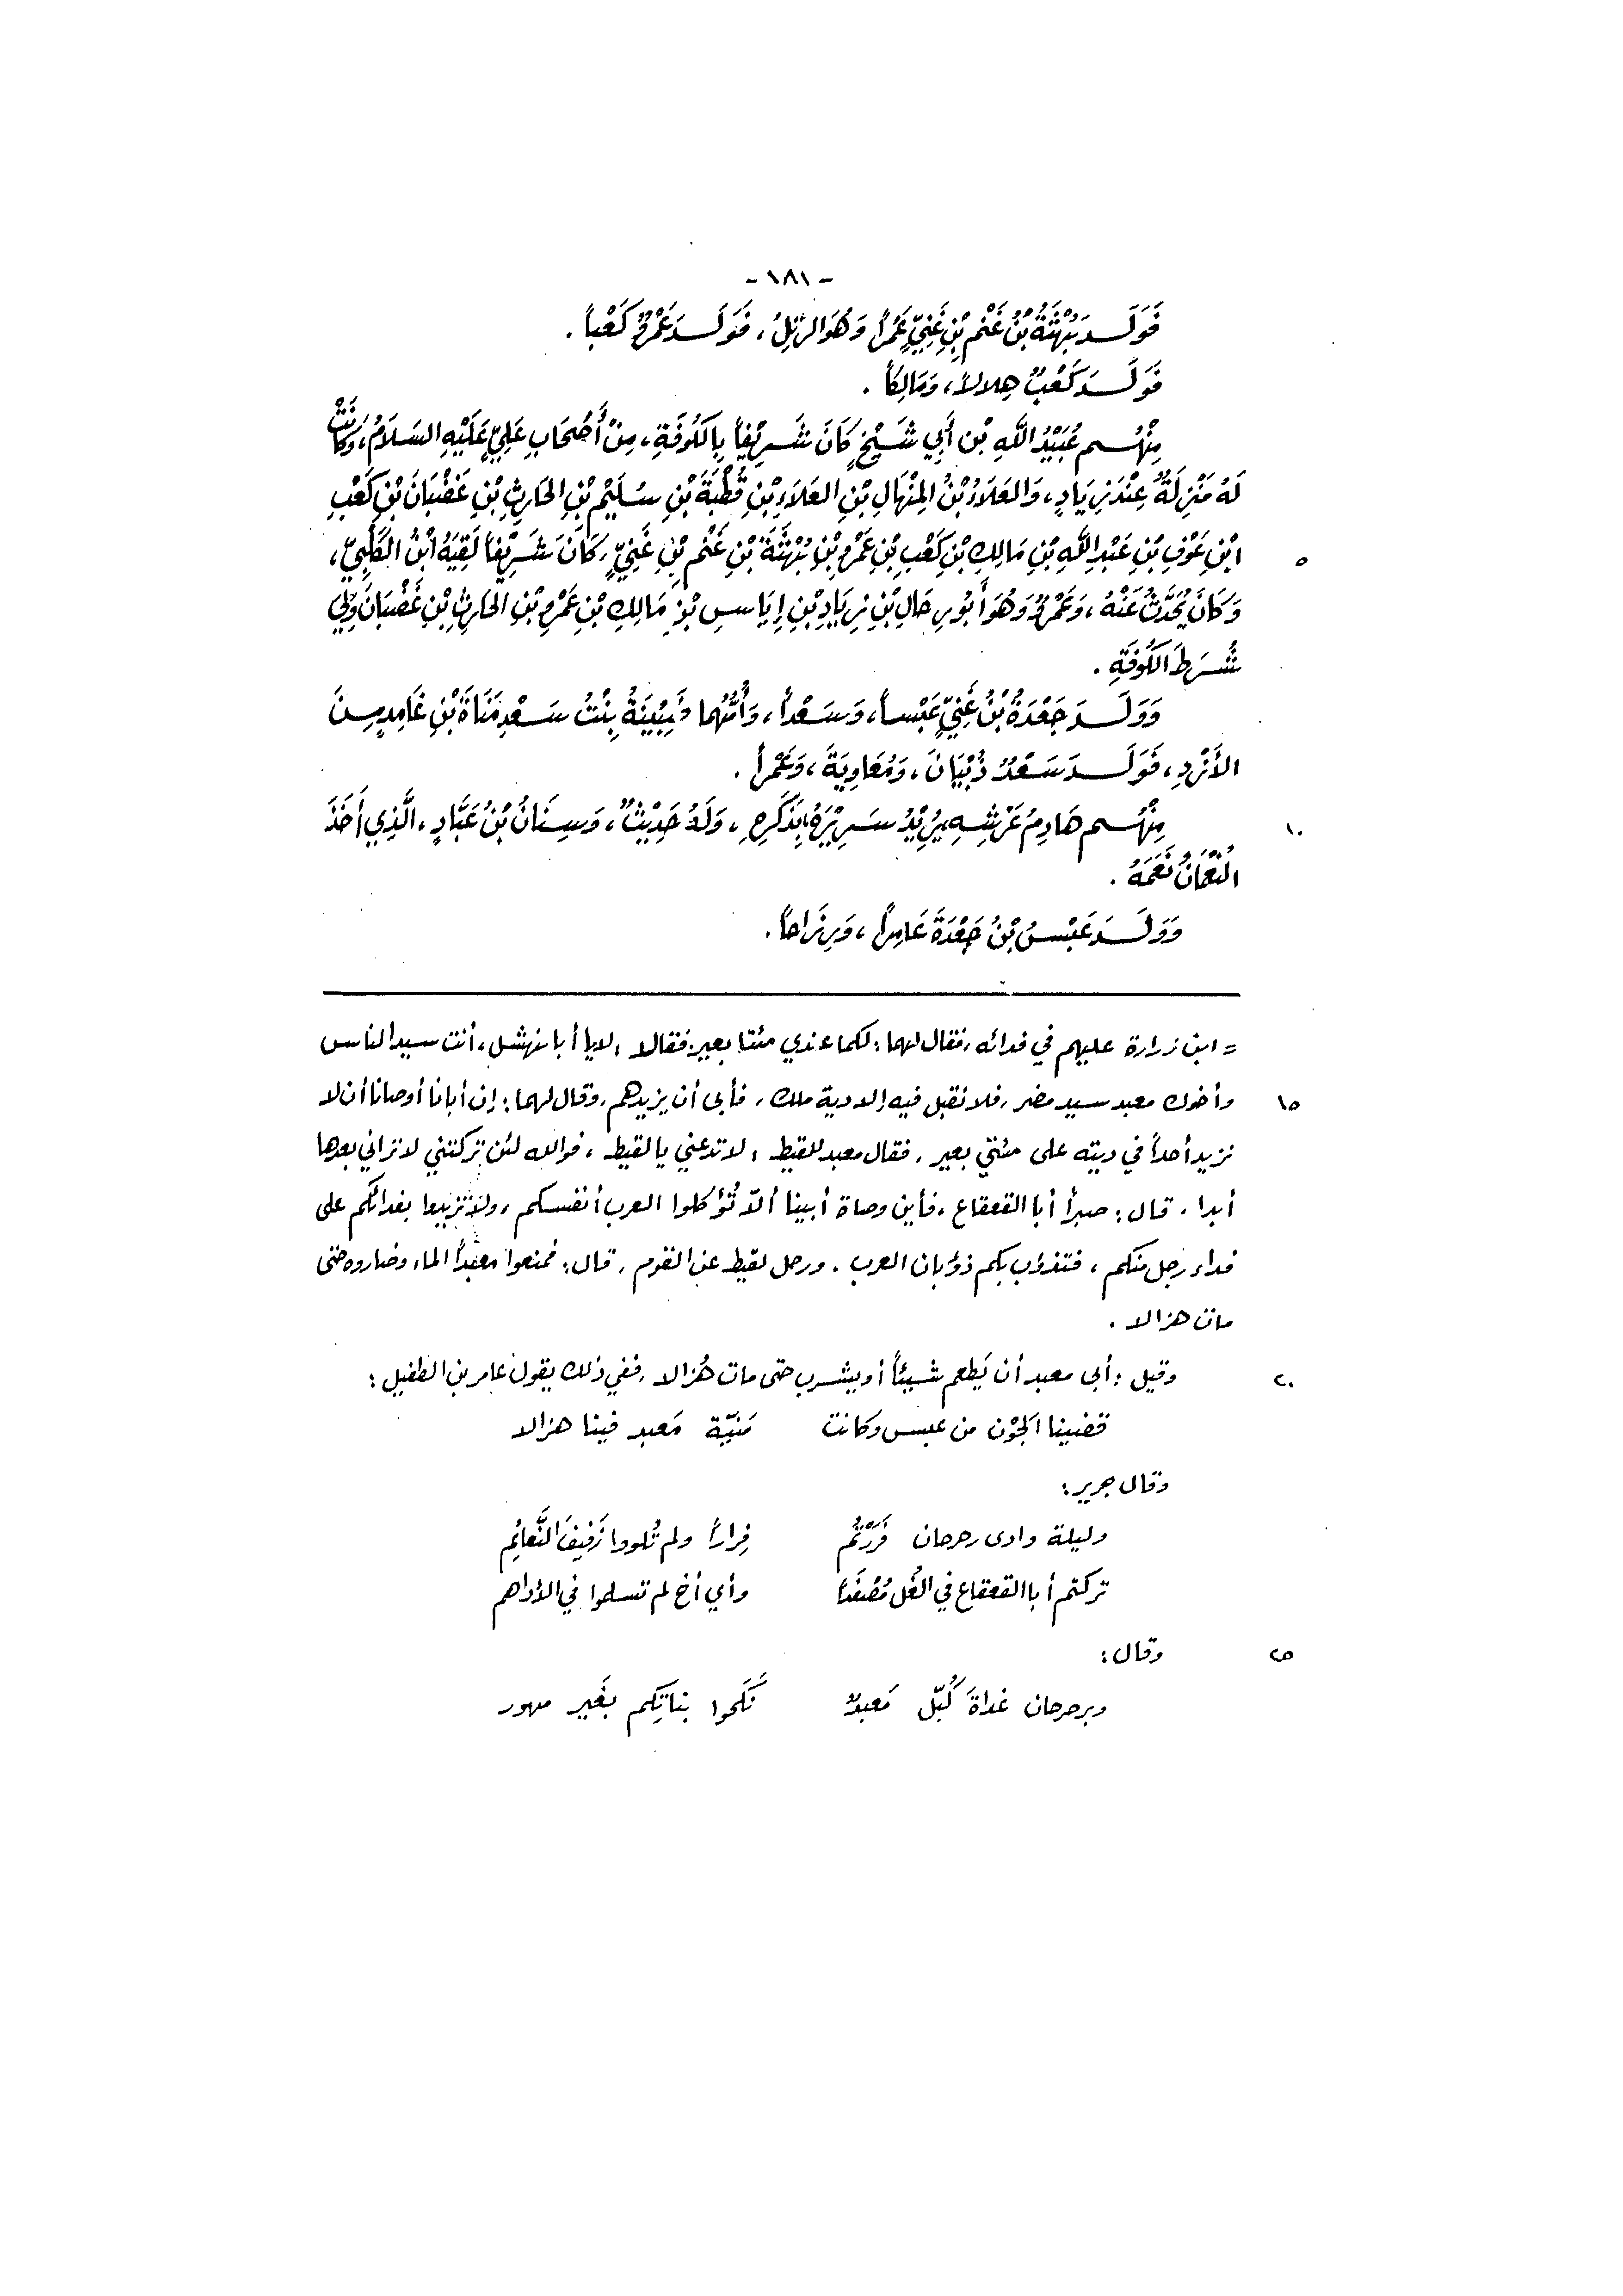 - ١٨١ -
فَوَلَدَ بُهْثَةُ بْنُ غَنْمِ بْنِ غَنِيٍّ عَمْراً وَهُوَ الرَّتِلُ، فَوَلَدَ عَمْرٌو كَعْباً.
فَوَلَدَ كَعْبٌ هِلالاً، وَمَالِكاً.
مِنْهُم عُبَيْدُ اللَّهِ بْن أَبِي شَيْخٍ كَانَ شَرِيْفاً بِالكُوفَةِ، مِنْ أَصْحَابِ عَلِيٍّ عَلَيْهِ السَلَامُ، وَكَانَتْ
لَهُ مَنْزِلَةٌ عِنْدَ زِيَادٍ، وَالعَلَاءُ بْنُ المِنْهَالِ بْنِ العَلَاءِ بْنِ قُطْبَةَ بْنِ سُلَيْمِ بْنِ الحَارِثِ بْنِ غَضْبَانَ بْنِ كَعْبِ
٥ ابْنِ عَوْفِ بْنِ عَبْدِ اللَّهِ بْنِ مَالِكِ بْنِ كَعْبِ بْنِ عَمْرِو بْنِ بُهْثَةَ بْنِ غَنْمِ بْنِ غَنِيٍّ، كَانَ شَرِيْفاً لَقِيَهُ ابْنُ الكَلْبِيِّ،
وَكَانَ يُحَدِّثُ عَنْهُ، وَعَمْرٌو وَهُوَ أَبُو رِحَالِ بْنِ زِيَادِ بْنِ إِيَاسِ بْنِ مَالِكِ بْنِ عَمْرِو بْنِ الحَارِثِ بْنِ غَضْبَانَ وَلِيَ
شُرَطَ الكُوفَةِ.
وَوَلَدَ جَعْدَةُ بْنُ غَنِيٍّ عَبْساً، وَسَعْداً، وَأُمُّهُمَا بِنْتُ سَعْدِ مَنَاةَ بْنِ غَامِدٍ مِنَ
الأَزْدِ، فَوَلَدَ سَعْدٌ ذُبْيَانَ، وَمُعَاوِيَةَ، وَعَمْراً.
١٠ مِنْهُم هَادِمُ عَرْشِهِ يُرِيْدُ سَرِيْرَهُ بِذَكَرِهِ، وَلَهُ حَدِيْثٌ، وَسِنَانُ بْنُ عَبَّادٍ، الَّذِي أَخَذَ
النُّعْمَانُ نَعَمَهُ.
وَوَلَدَ عَبْسُ بْنُ جَعْدَةَ عَامِراً، وَرِزَاحاً.
= ابن زرارة عليهم في فدائه، فقال لهما: لكما عندي مئتا بعير، فقالا: لا يا أبا نهشل، أنت سيد الناس
١٥ وأخوك معبد سيد مضر، فلا نقبل فيه إلا دية ملك، فأبى أن يزيدهم، وقال لهما: إن أبانا أوصانا أن لا
نزيد أحداً في ديته على مئتي بعير، فقال معبد للقيط: لا تدعني يا لقيط، فوالله لئن تركتني لا تراني بعدها
أبدا، قال: صبراً أبا القعقاع، فأين وصاة أبينا ألّا تُؤكلوا العرب أنفسكم، ولا تزيدوا بفدائكم على
فداء رجل منكم، فتذؤب بكم ذؤبان العرب. ورحل لقيط عن القوم، قال: فمنعوا معبداً الماء وضاروه حتى
مات هزالا.
٢٠ وقيل: أبى معبد أن يَطعم شيئاً أو يشرب حتى مات هُزالا، ففي ذلك يقول عامر بن الطفيل:
قضينا الجَوْن من عبس وكانت مَنيّة مَعبد فينا هزالا
وقال جرير:
وليلة وادى رحرحان فَرَرْتُمُ فِراراً ولم تُلووا زَفيفَ النَّعائِم
تركتم أبا القعقاع في الغُل مُصْفَداً وأي أخ لم تسلموا في الأداهم
٢٥ وقال:
وبرحرحان غداةَ كُبّل مَعبدٌ نَكَحوا بناتِكم بغَير مهور